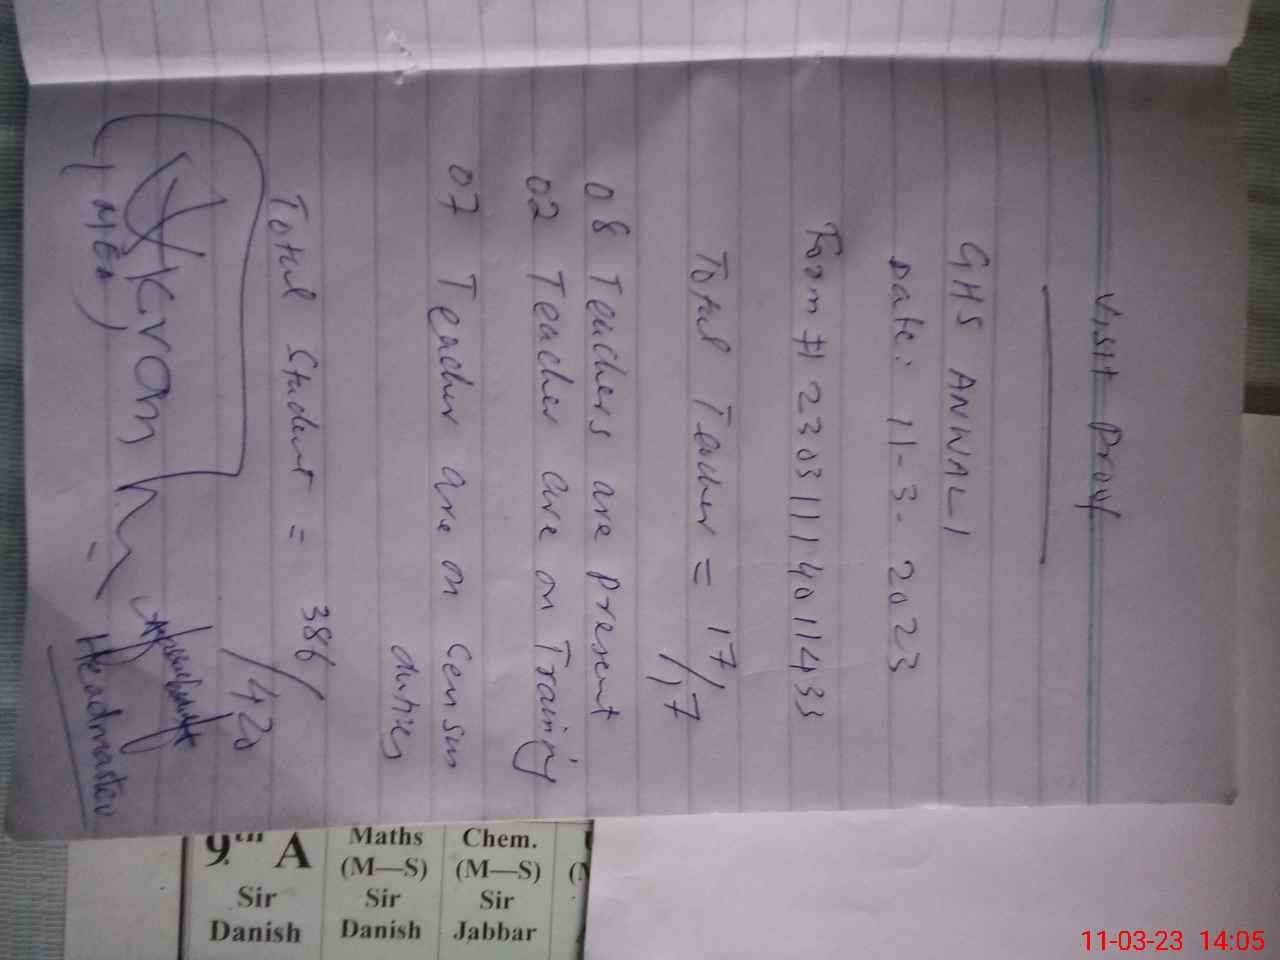 Visit Proof
GHS ANWALI
Date: 11-3-2023
Form # 23031114011433
Total Teacher = 17/17
08 Teachers are present
02 Teacher are on Training
07 Teacher are on Census
duties
Total Student = 386/420
Akram
(MEA)
Headmaster
9th A
Sir
Danish
Maths
(M—S)
Sir
Danish
Chem.
(M—S)
Sir
Jabbar
11-03-23 14:05